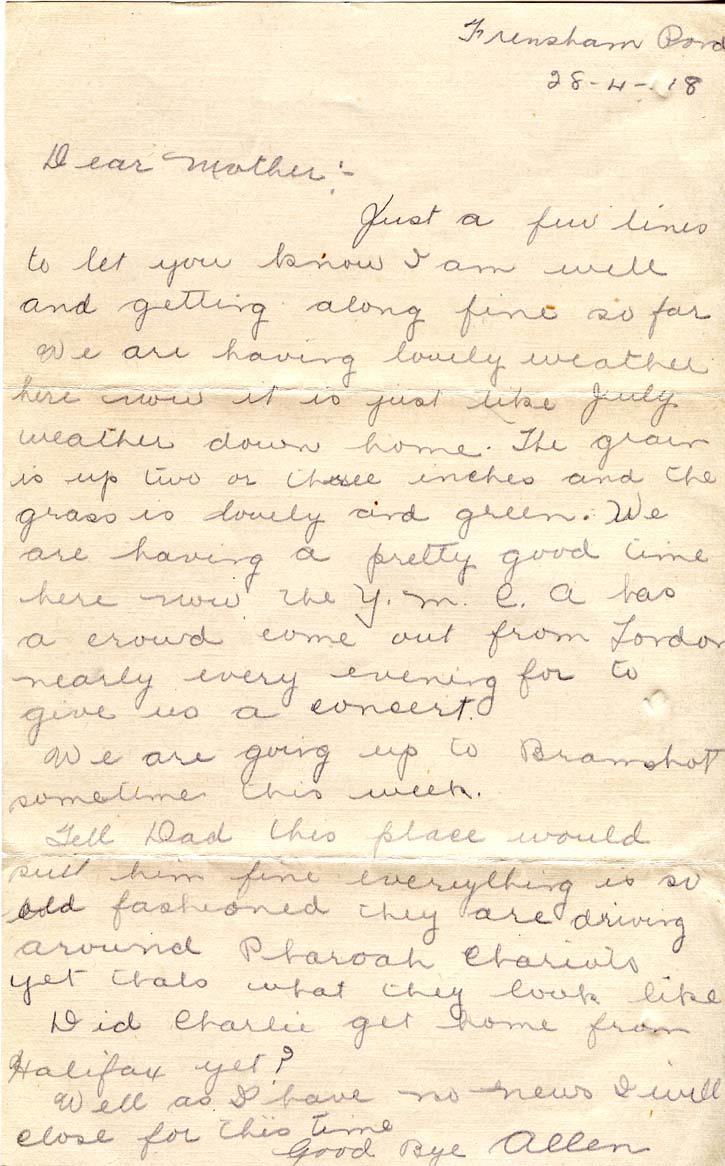 Frensham Pond
28-4-18
Dear Mother:-
Just a few lines
to let you know I am well
and getting along fine so far
We are having lovely weather
here now it is just like July
weather down home. The grain
is up two or three inches and the
grass is lovely and green. We
are having a pretty good time
here now the Y. M. C. A has
a crowd come out from London
nearly every evening for to
give us a concert.
We are going up to Bramshot
sometime this week.
Tell Dad this place would
suit him fine everything is so
old fashioned they are driving
around Pharoah Chariots
yet thats what they look like
Did Charlie get home from
Halifax yet?
Well as I have no news I will
close for this time
Good Bye Allen